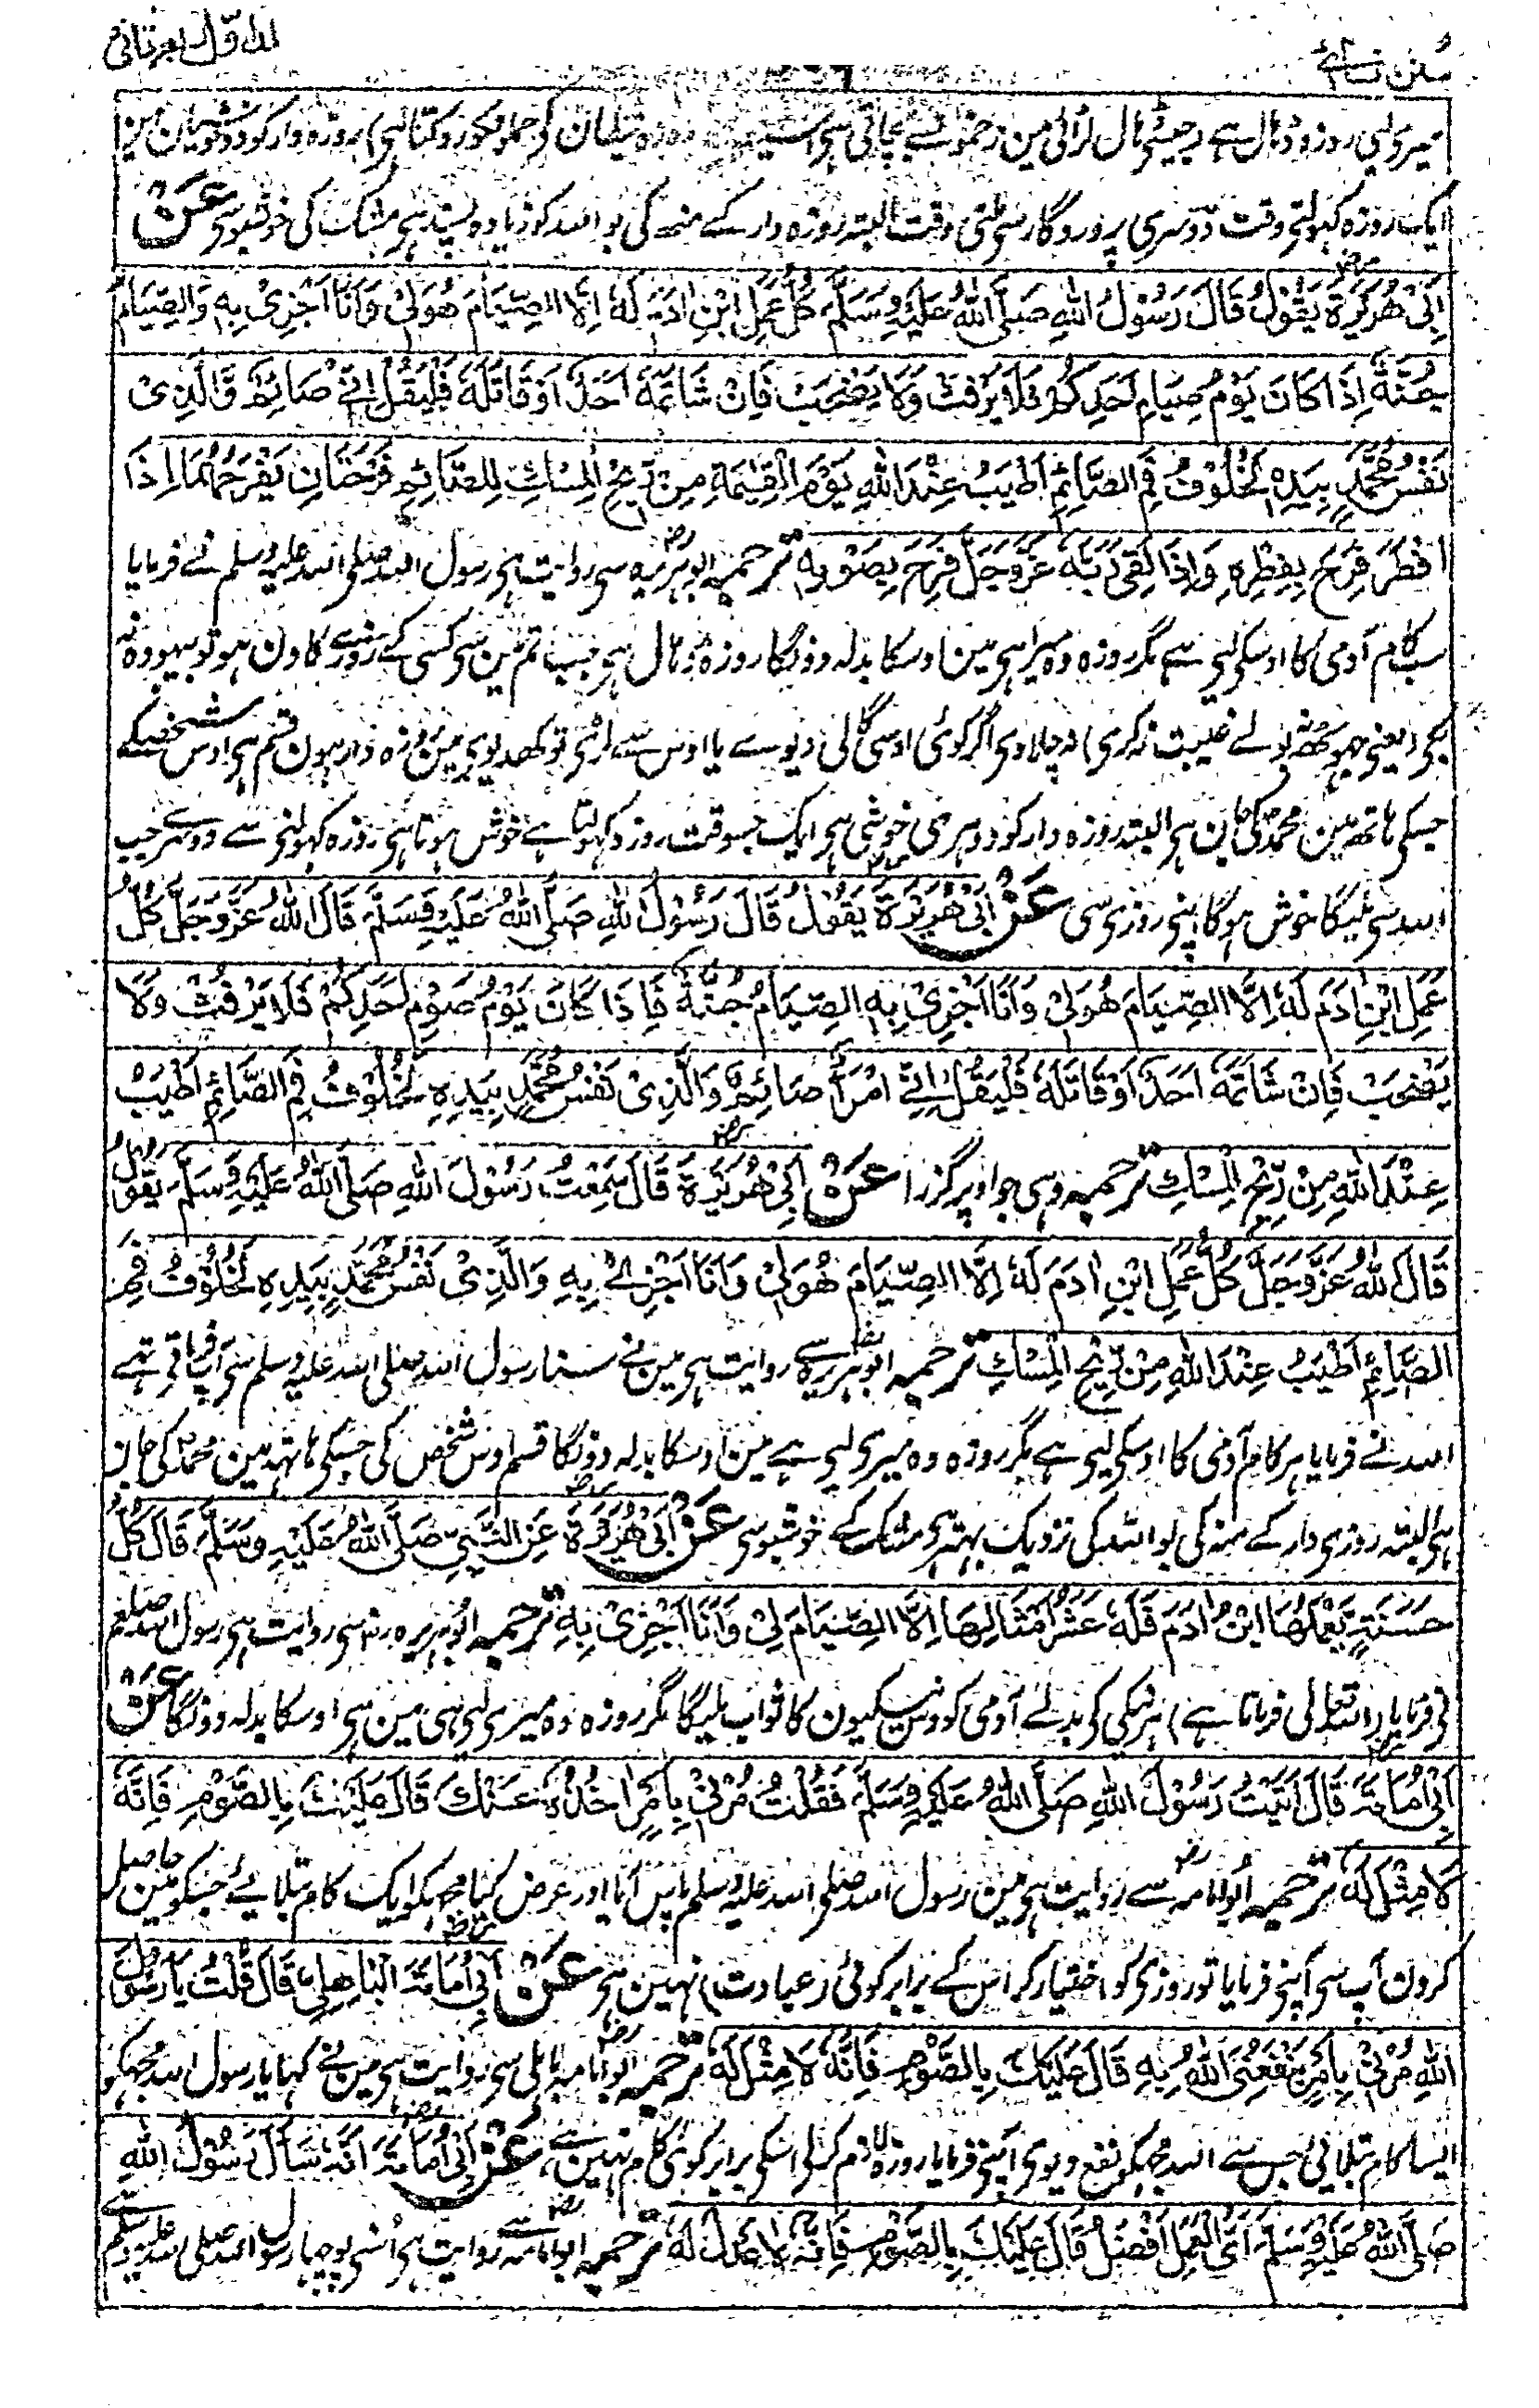 سُنن نسائی
میری لیی روزہ ڈہال ہے جیسے ڈہال لڑائی مین زخمونسے بچاتی ہی شیطان کی حملونکو روکتا ہی) روزہ دار کو دو خوشیان ہین
ایک روزہ کہولتی وقت دوسری پروردگار سی ملتی وقت البتہ روزہ دار کے منہ کی بو اللہ کو زیادہ پسند ہی مشک کی خوشبو سی عَنْ
اَبِيْ هُرَيْرَةَ يَقُوْلُ قَالَ رَسُوْلُ اللهِ صَلَّى اللهُ عَلَيْهِ وَسَلَّمَ كُلُّ عَمَلِ ابْنِ اٰدَمَ لَهٗ اِلَّا الصِّيَامَ هُوَ لِيْ وَاَنَا اَجْزِيْ بِهٖ وَالصِّيَامُ
جُنَّةٌ اِذَا كَانَ يَوْمُ صِيَامِ اَحَدِكُمْ فَلَا يَرْفُثْ وَلَا يَصْخَبْ فَاِنْ شَاتَمَهٗ اَحَدٌ اَوْ قَاتَلَهٗ فَلْيَقُلْ اِنِّيْ صَائِمٌ وَّالَّذِيْ
نَفْسُ مُحَمَّدٍ بِيَدِهٖ لَخُلُوْفُ فَمِ الصَّائِمِ اَطْيَبُ عِنْدَ اللهِ يَوْمَ الْقِيٰمَةِ مِنْ رِيْحِ الْمِسْكِ لِلصَّائِمِ فَرْحَتَانِ يَفْرَحُهُمَا اِذَا
اَفْطَرَ فَرِحَ بِفِطْرِهٖ وَاِذَا لَقِيَ رَبَّهٗ عَزَّ وَجَلَّ فَرِحَ بِصَوْمِهٖ ترجمہ ابو ہریرہ سی روایت ہی رسول اللہ صلی اللہ علیہ وسلم نے فرمایا
سب کام آدمی کا اوسکی لیی ہے مگر روزہ وہ میرا ہی مین اوسکا بدلہ دونگا روزہ ڈہال ہی جب تم مین سی کسی کے روزے کا دن ہو تو بیہودہ نہ
بکی (یعنی جہوٹھ نہ بولے غیبت نہ کری) نہ چلاوی اگر کوئی اوسی گالی دیوے یا اوس سے لڑی تو کھدیوی مین روزہ دار ہون قسم ہی اوس شخصکے
جسکی ہاتھ مین محمد کی جان ہی البتہ روزہ دار کو دوہری خوشی ہی ایک جسوقت روزہ کہولتا ہے خوش ہوتا ہی روزہ کہولنی سے دوسرے جب
اللہ سی ملیگا خوش ہوگا اپنی روزی سی عَنْ اَبِيْ هُرَيْرَةَ يَقُوْلُ قَالَ رَسُوْلُ اللهِ صَلَّى اللهُ عَلَيْهِ وَسَلَّمَ قَالَ اللهُ عَزَّ وَجَلَّ كُلُّ
عَمَلِ ابْنِ اٰدَمَ لَهٗ اِلَّا الصِّيَامَ هُوَ لِيْ وَاَنَا اَجْزِيْ بِهٖ الصِّيَامُ جُنَّةٌ فَاِذَا كَانَ يَوْمُ صَوْمِ اَحَدِكُمْ فَلَا يَرْفُثْ وَلَا
يَصْخَبْ فَاِنْ شَاتَمَهٗ اَحَدٌ اَوْ قَاتَلَهٗ فَلْيَقُلْ اِنِّيْ امْرَأٌ صَائِمٌ وَالَّذِيْ نَفْسُ مُحَمَّدٍ بِيَدِهٖ لَخُلُوْفُ فَمِ الصَّائِمِ اَطْيَبُ
عِنْدَ اللهِ مِنْ رِيْحِ الْمِسْكِ ترجمہ وہی جو اوپر گزرا عَنْ اَبِيْ هُرَيْرَةَ قَالَ سَمِعْتُ رَسُوْلَ اللهِ صَلَّى اللهُ عَلَيْهِ وَسَلَّمَ يَقُوْلُ
قَالَ اللهُ عَزَّ وَجَلَّ كُلُّ عَمَلِ ابْنِ اٰدَمَ لَهٗ اِلَّا الصِّيَامَ هُوَ لِيْ وَاَنَا اَجْزِيْ بِهٖ وَالَّذِيْ نَفْسُ مُحَمَّدٍ بِيَدِهٖ لَخُلُوْفُ فَمِ
الصَّائِمِ اَطْيَبُ عِنْدَ اللهِ مِنْ رِيْحِ الْمِسْكِ ترجمہ ابو ہریرہ سے روایت ہی مین نے سنا رسول اللہ صلی اللہ علیہ وسلم سی آپ فرماتی تہے
اللہ نے فرمایا ہر کام آدمی کا اوسکی لیی ہے مگر روزہ وہ میری لیی ہے مین اوسکا بدلہ دونگا قسم اوس شخص کی جسکی ہاتہہ مین محمد کی جان
ہی البتہ روزی دار کے منہ کی بو اللہ کی نزدیک بہتر ہی مشک کے خوشبو سی عَنْ اَبِيْ هُرَيْرَةَ عَنِ النَّبِيِّ صَلَّى اللهُ عَلَيْهِ وَسَلَّمَ قَالَ كُلُّ
حَسَنَةٍ يَعْمَلُهَا ابْنُ اٰدَمَ فَلَهٗ عَشْرُ اَمْثَالِهَا اِلَّا الصِّيَامَ لِيْ وَاَنَا اَجْزِيْ بِهٖ ترجمہ ابو ہریرہ رض سی روایت ہی رسول اللہ صلعم
نی فرمایا (اللہ تعالی فرماتا ہے) ہر نیکی کی بدلے آدمی کو دس نیکیون کا ثواب ملیگا مگر روزہ وہ میری لیی ہی مین ہی اوسکا بدلہ دونگا عَنْ
اَبِيْ اُمَامَةَ قَالَ اَتَيْتُ رَسُوْلَ اللهِ صَلَّى اللهُ عَلَيْهِ وَسَلَّمَ فَقُلْتُ مُرْنِيْ بِاَمْرٍ اٰخُذُهٗ عَنْكَ قَالَ عَلَيْكَ بِالصَّوْمِ فَاِنَّهٗ
لَا مِثْلَ لَهٗ ترجمہ ابو امامہ سے روایت ہی مین رسول اللہ صلی اللہ علیہ وسلم پاس آیا اور عرض کیا مجہکو ایک کام بتلایے جسکو مین حاصل
کرون آپ سی آپنی فرمایا تو روزی کو اختیار کر اس کے برابر کوئی (عبادت) نہین ہی عَنْ اَبِيْ اُمَامَةَ الْبَاهِلِيِّ قَالَ قُلْتُ يَا رَسُوْلَ
اللهِ مُرْنِيْ بِاَمْرٍ يَنْفَعُنِيَ اللهُ بِهٖ قَالَ عَلَيْكَ بِالصَّوْمِ فَاِنَّهٗ لَا مِثْلَ لَهٗ ترجمہ ابو امامہ باہلی سی روایت ہی مین نے کہا یا رسول اللہ مجہکو
ایسا کام بتلائی جس سے اللہ مجہکو نفع دیوی آپنی فرمایا روزہ لازم کر لی اسکی برابر کوئی کام نہین ہے عَنْ اَبِيْ اُمَامَةَ اَنَّهٗ سَاَلَ رَسُوْلَ اللهِ
صَلَّى اللهُ عَلَيْهِ وَسَلَّمَ اَيُّ الْعَمَلِ اَفْضَلُ قَالَ عَلَيْكَ بِالصَّوْمِ فَاِنَّهٗ لَا عِدْلَ لَهٗ ترجمہ ابو امامہ سے روایت ہی اُسنی پوچہا رسول اللہ صلی اللہ علیہ وسلم سے